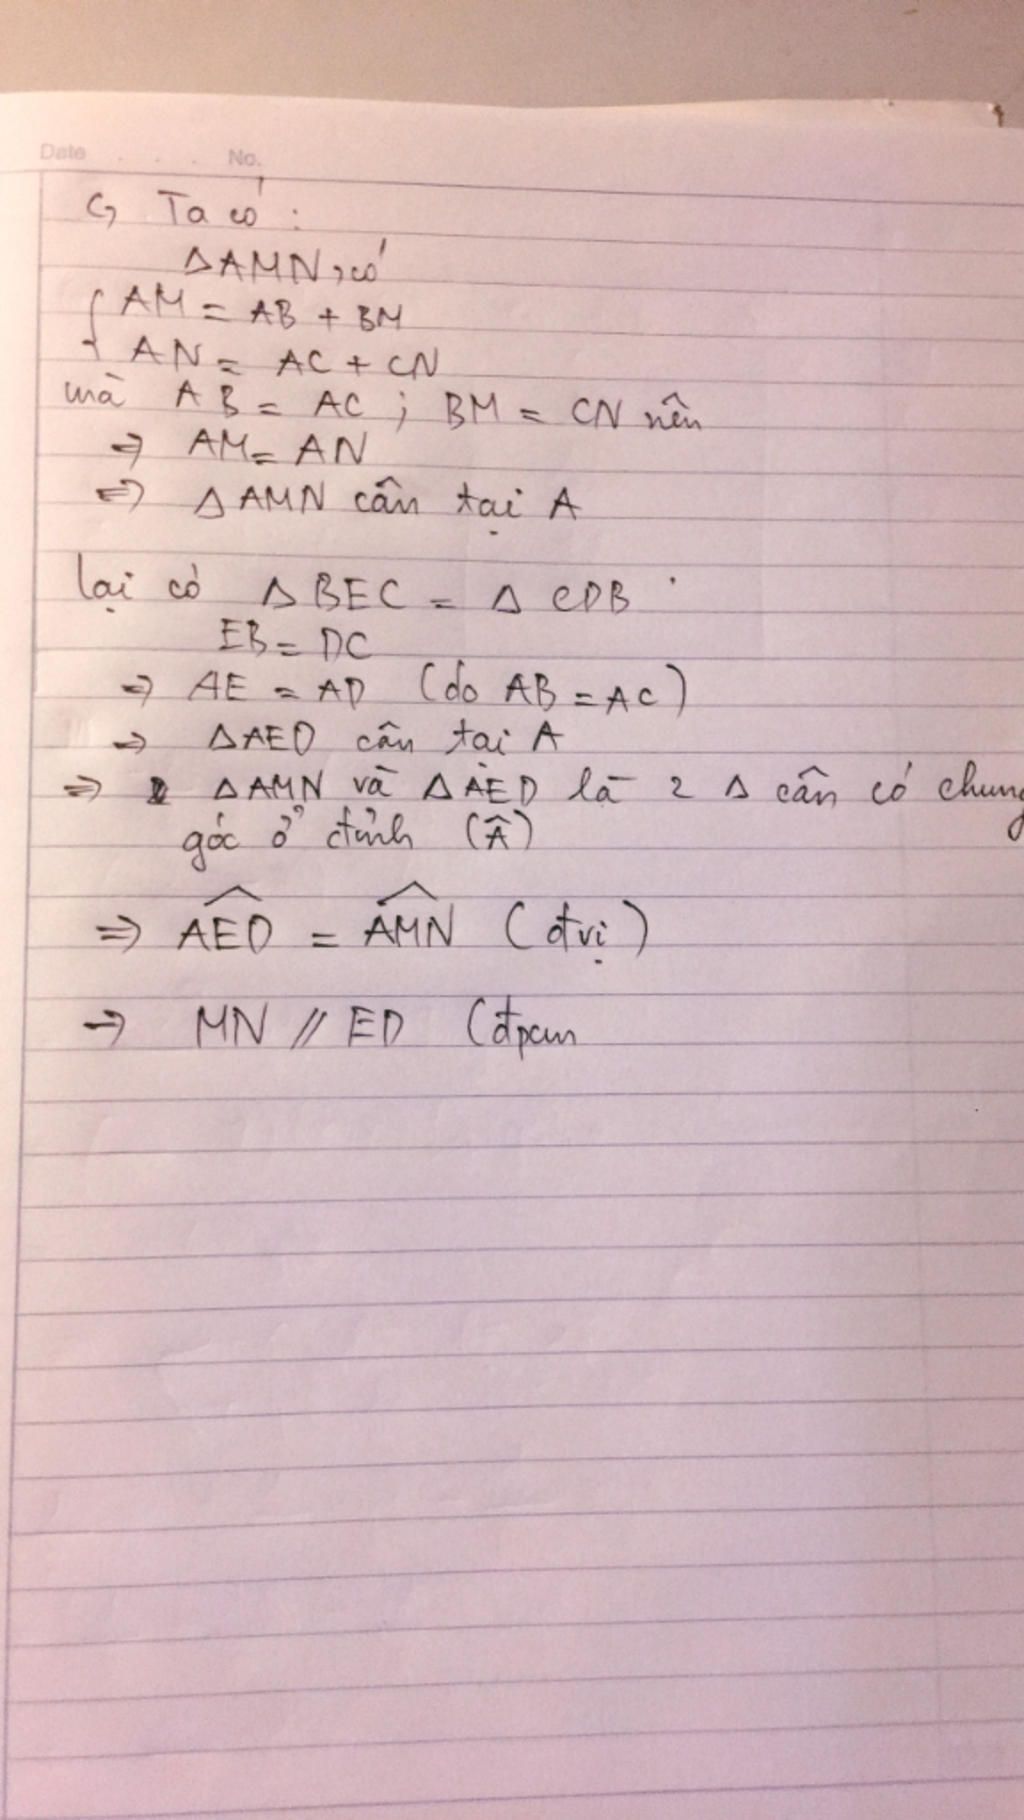 Date . . . No.
c, Ta có :
ΔAMN, có
{ AM = AB + BM
AN = AC + CN
mà AB = AC ; BM = CN nên
=> AM = AN
=> ΔAMN cân tại A
lại có Δ BEC = Δ CDB
EB = DC
=> AE = AD (do AB = AC)
=> ΔAED cân tại A
=> ΔAMN và ΔAED là 2 Δ cân có chung
góc ở đỉnh (Â)
=> \widehat{AED} = \widehat{AMN} (đvị)
=> MN // ED (đpcm